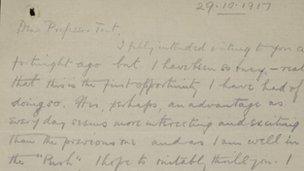 29-10-1917
Dear Professor
I fully intended writing to you a
fortnight ago but I have been so very – real
that this is the first opportunity I have had of
doing so. It is, perhaps, an advantage as
every day seems more interesting and exciting
than the previous one and as I am well in
the "Push" I hope to suitably thrill you. I